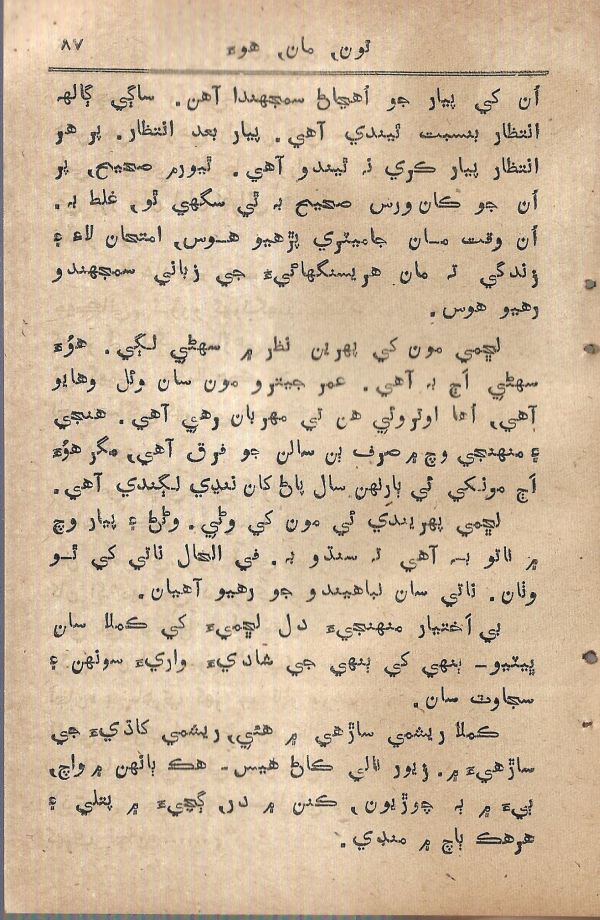 تون، مان، هوءَ ٨٧
اُن کي پيار جو اُهڃاڻ سمجهندا آهن. ساڳي ڳالهہ
انتظار بنسبت ٿيندي آهي. پيار بعد انتظار. پر هر
انتظار پيار ڪري نہ ٿيندو آهي. ٿيورم صحيح، پر
اُن جو ڪانورس صحيح بہ ٿي سگهي ٿو، غلط بہ.
اُن وقت مان جاميٽري پڙهيو هوس، امتحان لاءِ ۽
زندگي تہ مان هريسنگهاڻيءَ جي زباني سمجهندو
رهيو هوس.
لڇمي مون کي پهرين نظر ۾ سهڻي لڳي. هوُءَ
سهڻي اَڄ بہ آهي. عمر جيترو مون سان وئل وهايو
آهي، اُها اوتروئي هن تي مهربان رهي آهي. هنجي
۽ منهنجي وچ ۾ صرف ٻن سالن جو فرق آهي، مگر هوُءَ
اَڄ مونکي ئي ٻارنهن سال پاڻ کان ننڍي لڳندي آهي.
لڇمي پهريندي ئي مون کي وڻي. وڻڻ ۽ پيار وچ
۾ ناتو بہ آهي تہ سنڌو بہ. في الحال ناتي کي ٿو
وٺان. ناتي سان نباهيندو جو رهيو آهيان.
بي اَختيار منهنجيءَ دل لڇميءَ کي ڪملا سان
ڀيٽيو- ٻنهي کي ٻنهي جي شاديءَ واريءَ سونهن ۽
سجاوٽ سان.
ڪملا ريشمي ساڙهي ۾ هئي، ريشمي کاڌيءَ جي
ساڙهيءَ ۾. زيور نالي ڪاڻ هيس- هڪ ٻانهن ۾ واچ،
ٻيءَ ۾ ٻہ چوڙيون، ڪنن ۾ در، ڳچيءَ ۾ پتلي ۽
هرهڪ ٻاچ ۾ منڊي.